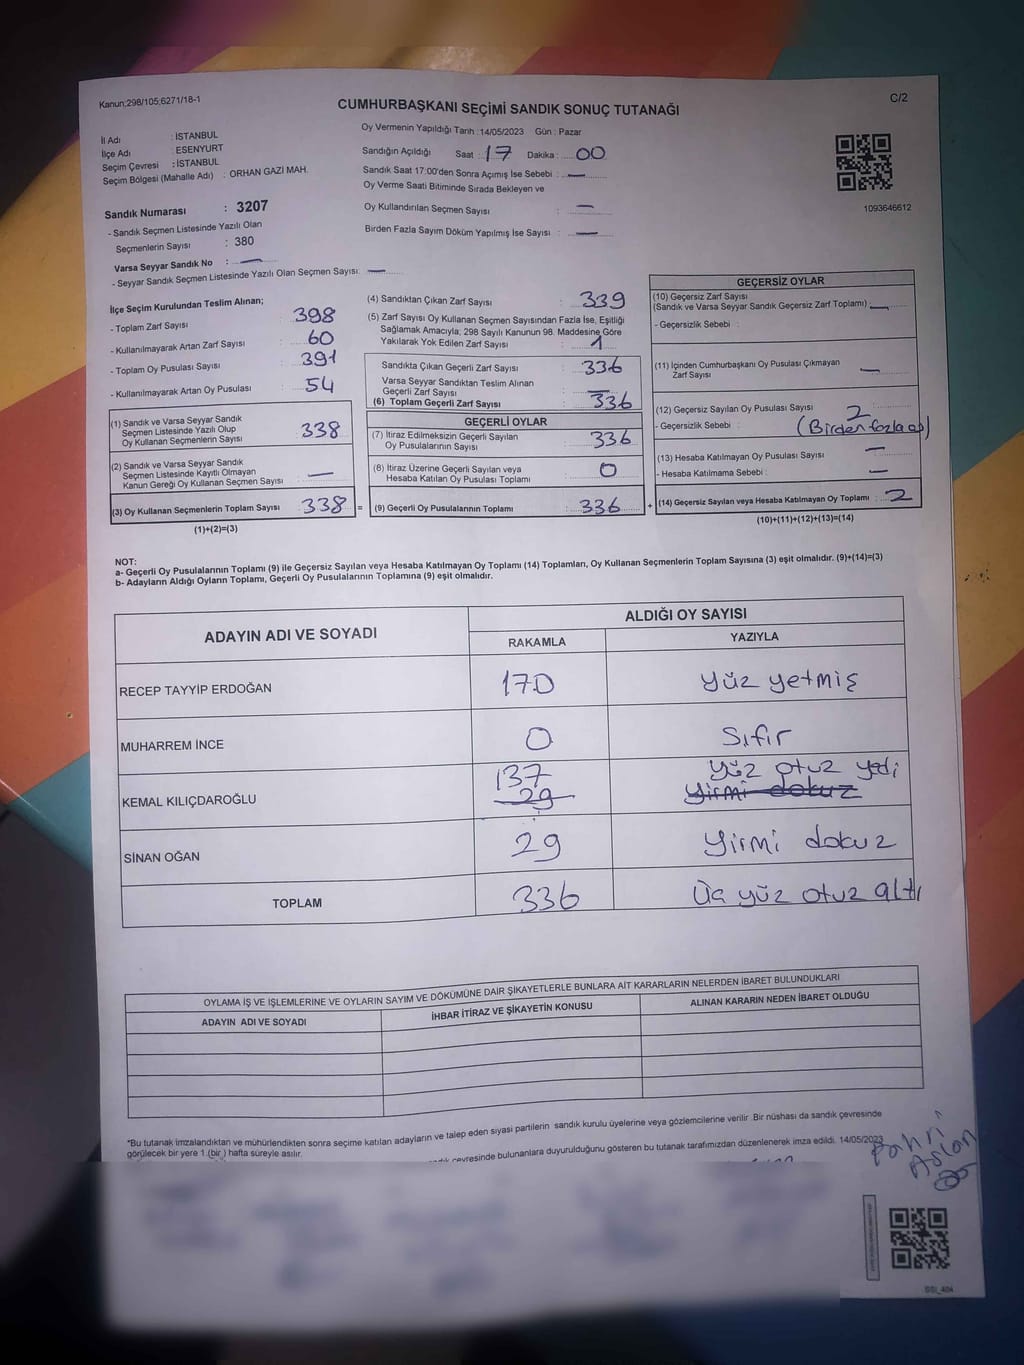 Kanun;298/105;6271/18-1
C/2
CUMHURBAŞKANI SEÇİMİ SANDIK SONUÇ TUTANAĞI
İl Adı : İSTANBUL
İlçe Adı : ESENYURT
Seçim Çevresi : İSTANBUL
Seçim Bölgesi (Mahalle Adı) : ORHAN GAZİ MAH.
Sandık Numarası : 3207
- Sandık Seçmen Listesinde Yazılı Olan
Seçmenlerin Sayısı : 380
Varsa Seyyar Sandık No : —
- Seyyar Sandık Seçmen Listesinde Yazılı Olan Seçmen Sayısı: —
Oy Vermenin Yapıldığı Tarih : 14/05/2023 Gün : Pazar
Sandığın Açıldığı Saat : 17 Dakika : 00
Sandık Saat 17:00'den Sonra Açımış İse Sebebi : —
Oy Verme Saati Bitiminde Sırada Bekleyen ve
Oy Kullandırılan Seçmen Sayısı : —
Birden Fazla Sayım Döküm Yapılmış İse Sayısı : —
1093646612
İlçe Seçim Kurulundan Teslim Alınan;
- Toplam Zarf Sayısı : 398
- Kullanılmayarak Artan Zarf Sayısı : 60
- Toplam Oy Pusulası Sayısı : 391
- Kullanılmayarak Artan Oy Pusulası : 54
(1) Sandık ve Varsa Seyyar Sandık
Seçmen Listesinde Yazılı Olup
Oy Kullanan Seçmenlerin Sayısı : 338
(2) Sandık ve Varsa Seyyar Sandık
Seçmen Listesinde Kayıtlı Olmayan
Kanun Gereği Oy Kullanan Seçmen Sayısı : —
(3) Oy Kullanan Seçmenlerin Toplam Sayısı : 338 =
(1)+(2)=(3)
(4) Sandıktan Çıkan Zarf Sayısı : 339
(5) Zarf Sayısı Oy Kullanan Seçmen Sayısından Fazla İse, Eşitliği
Sağlamak Amacıyla; 298 Sayılı Kanunun 98. Maddesine Göre
Yakılarak Yok Edilen Zarf Sayısı : 1
Sandıkta Çıkan Geçerli Zarf Sayısı : 336
Varsa Seyyar Sandıktan Teslim Alınan
Geçerli Zarf Sayısı :
(6) Toplam Geçerli Zarf Sayısı : 336
GEÇERLİ OYLAR
(7) İtiraz Edilmeksizin Geçerli Sayılan
Oy Pusulalarının Sayısı : 336
(8) İtiraz Üzerine Geçerli Sayılan veya
Hesaba Katılan Oy Pusulası Toplamı : 0
(9) Geçerli Oy Pusulalarının Toplamı : 336 +
GEÇERSİZ OYLAR
(10) Geçersiz Zarf Sayısı
(Sandık ve Varsa Seyyar Sandık Geçersiz Zarf Toplamı) : —
- Geçersizlik Sebebi :
(11) İçinden Cumhurbaşkanı Oy Pusulası Çıkmayan
Zarf Sayısı : —
(12) Geçersiz Sayılan Oy Pusulası Sayısı : 2
- Geçersizlik Sebebi : (Birden fazla oy)
(13) Hesaba Katılmayan Oy Pusulası Sayısı : —
- Hesaba Katılmama Sebebi : —
(14) Geçersiz Sayılan veya Hesaba Katılmayan Oy Toplamı : 2
(10)+(11)+(12)+(13)=(14)
NOT:
a- Geçerli Oy Pusulalarının Toplamı (9) ile Geçersiz Sayılan veya Hesaba Katılmayan Oy Toplamı (14) Toplamları, Oy Kullanan Seçmenlerin Toplam Sayısına (3) eşit olmalıdır. (9)+(14)=(3)
b- Adayların Aldığı Oyların Toplamı, Geçerli Oy Pusulalarının Toplamına (9) eşit olmalıdır.
ADAYIN ADI VE SOYADI
ALDIĞI OY SAYISI
RAKAMLA YAZIYLA
RECEP TAYYİP ERDOĞAN 170 yüz yetmiş
MUHARREM İNCE 0 Sıfır
137 yüz otuz yedi
KEMAL KILIÇDAROĞLU 29 yirmi dokuz
SİNAN OĞAN 29 Yirmi dokuz
TOPLAM 336 Üç yüz otuz altı
OYLAMA İŞ VE İŞLEMLERİNE VE OYLARIN SAYIM VE DÖKÜMÜNE DAİR ŞİKAYETLERLE BUNLARA AİT KARARLARIN NELERDEN İBARET BULUNDUKLARI
ADAYIN ADI VE SOYADI İHBAR İTİRAZ VE ŞİKAYETİN KONUSU ALINAN KARARIN NEDEN İBARET OLDUĞU
*Bu tutanak imzalandıktan ve mühürlendikten sonra seçime katılan adayların ve talep eden siyasi partilerin sandık kurulu üyelerine veya gözlemcilerine verilir. Bir nüshası da sandık çevresinde
görülecek bir yere 1 (bir) hafta süreyle asılır.
çevresinde bulunanlara duyurulduğunu gösteren bu tutanak tarafımızdan düzenlenerek imza edildi. 14/05/2023
Aslan